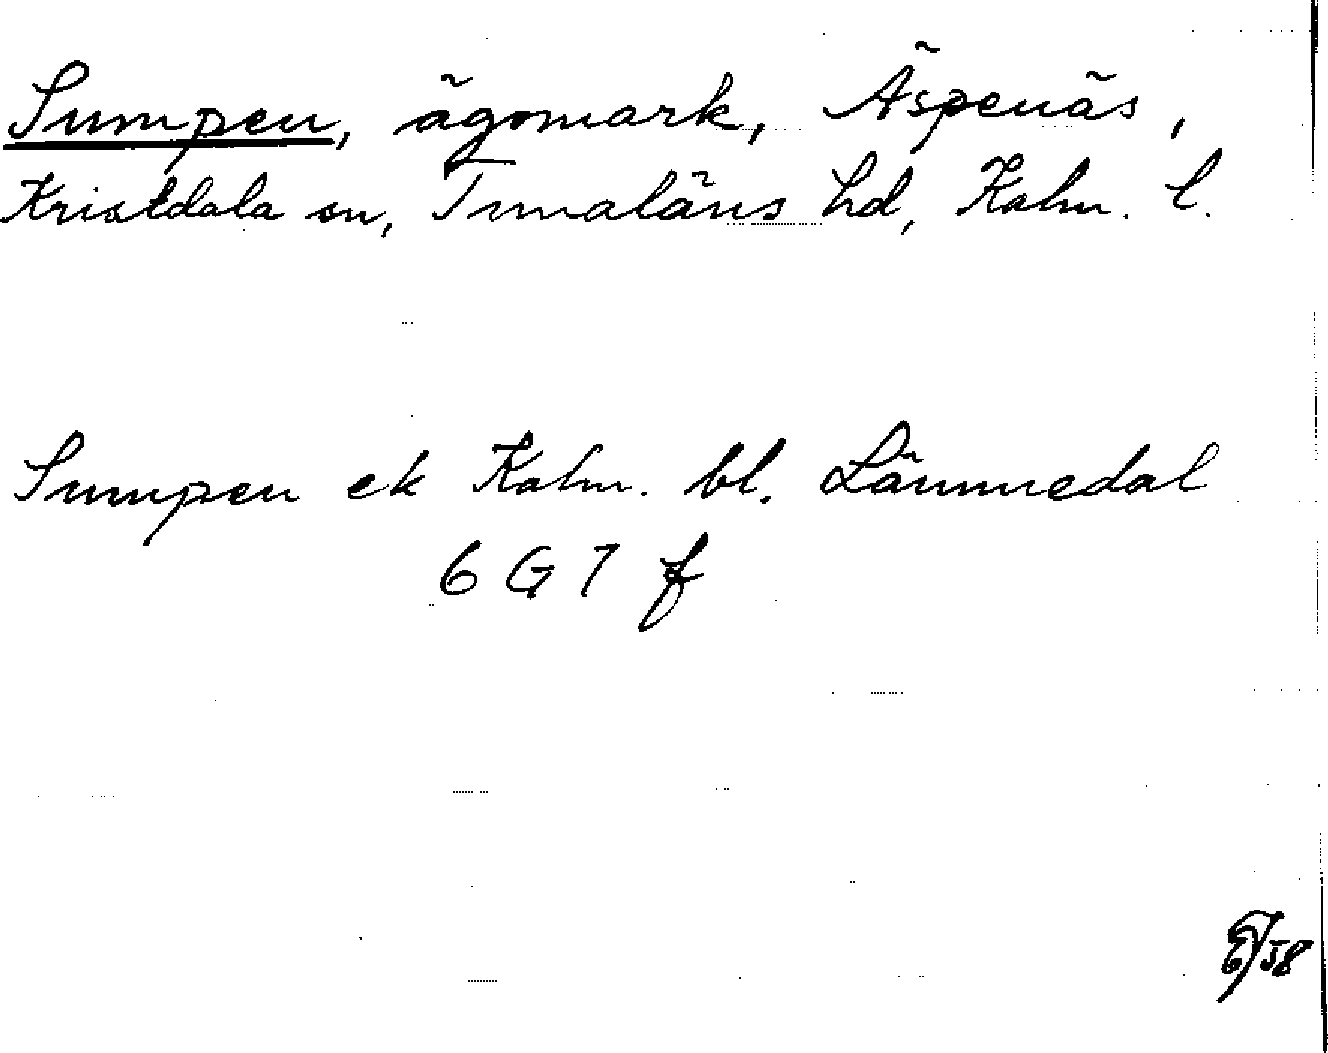 Sumpen, ägomark, Äspenäs,
Kristdala sn, Tunaläns hd, Kalm. l.
Sumpen ek Kalm. bl. Lämmedal
6 G 7 f